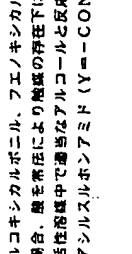 ルコキシカルボニル、フエノキシカル
場合、酸を常法により触媒の存在下に
活性溶媒中で適当なアルコールと反応
アシルスルホンアミド(Y=-CON